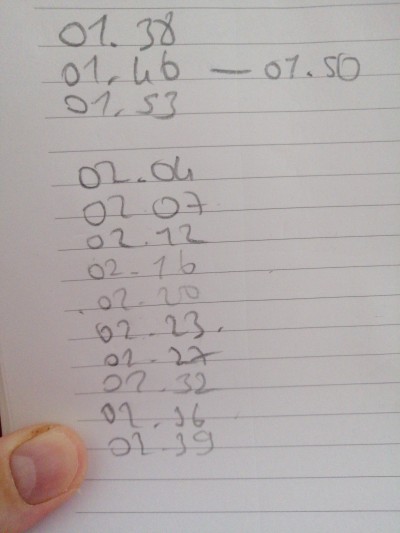 01.38
01.46 — 01.50
01.53
02.04
02 07
02.12
02.16
02.20
02.23.
02.27
02.32
02.36
02.39